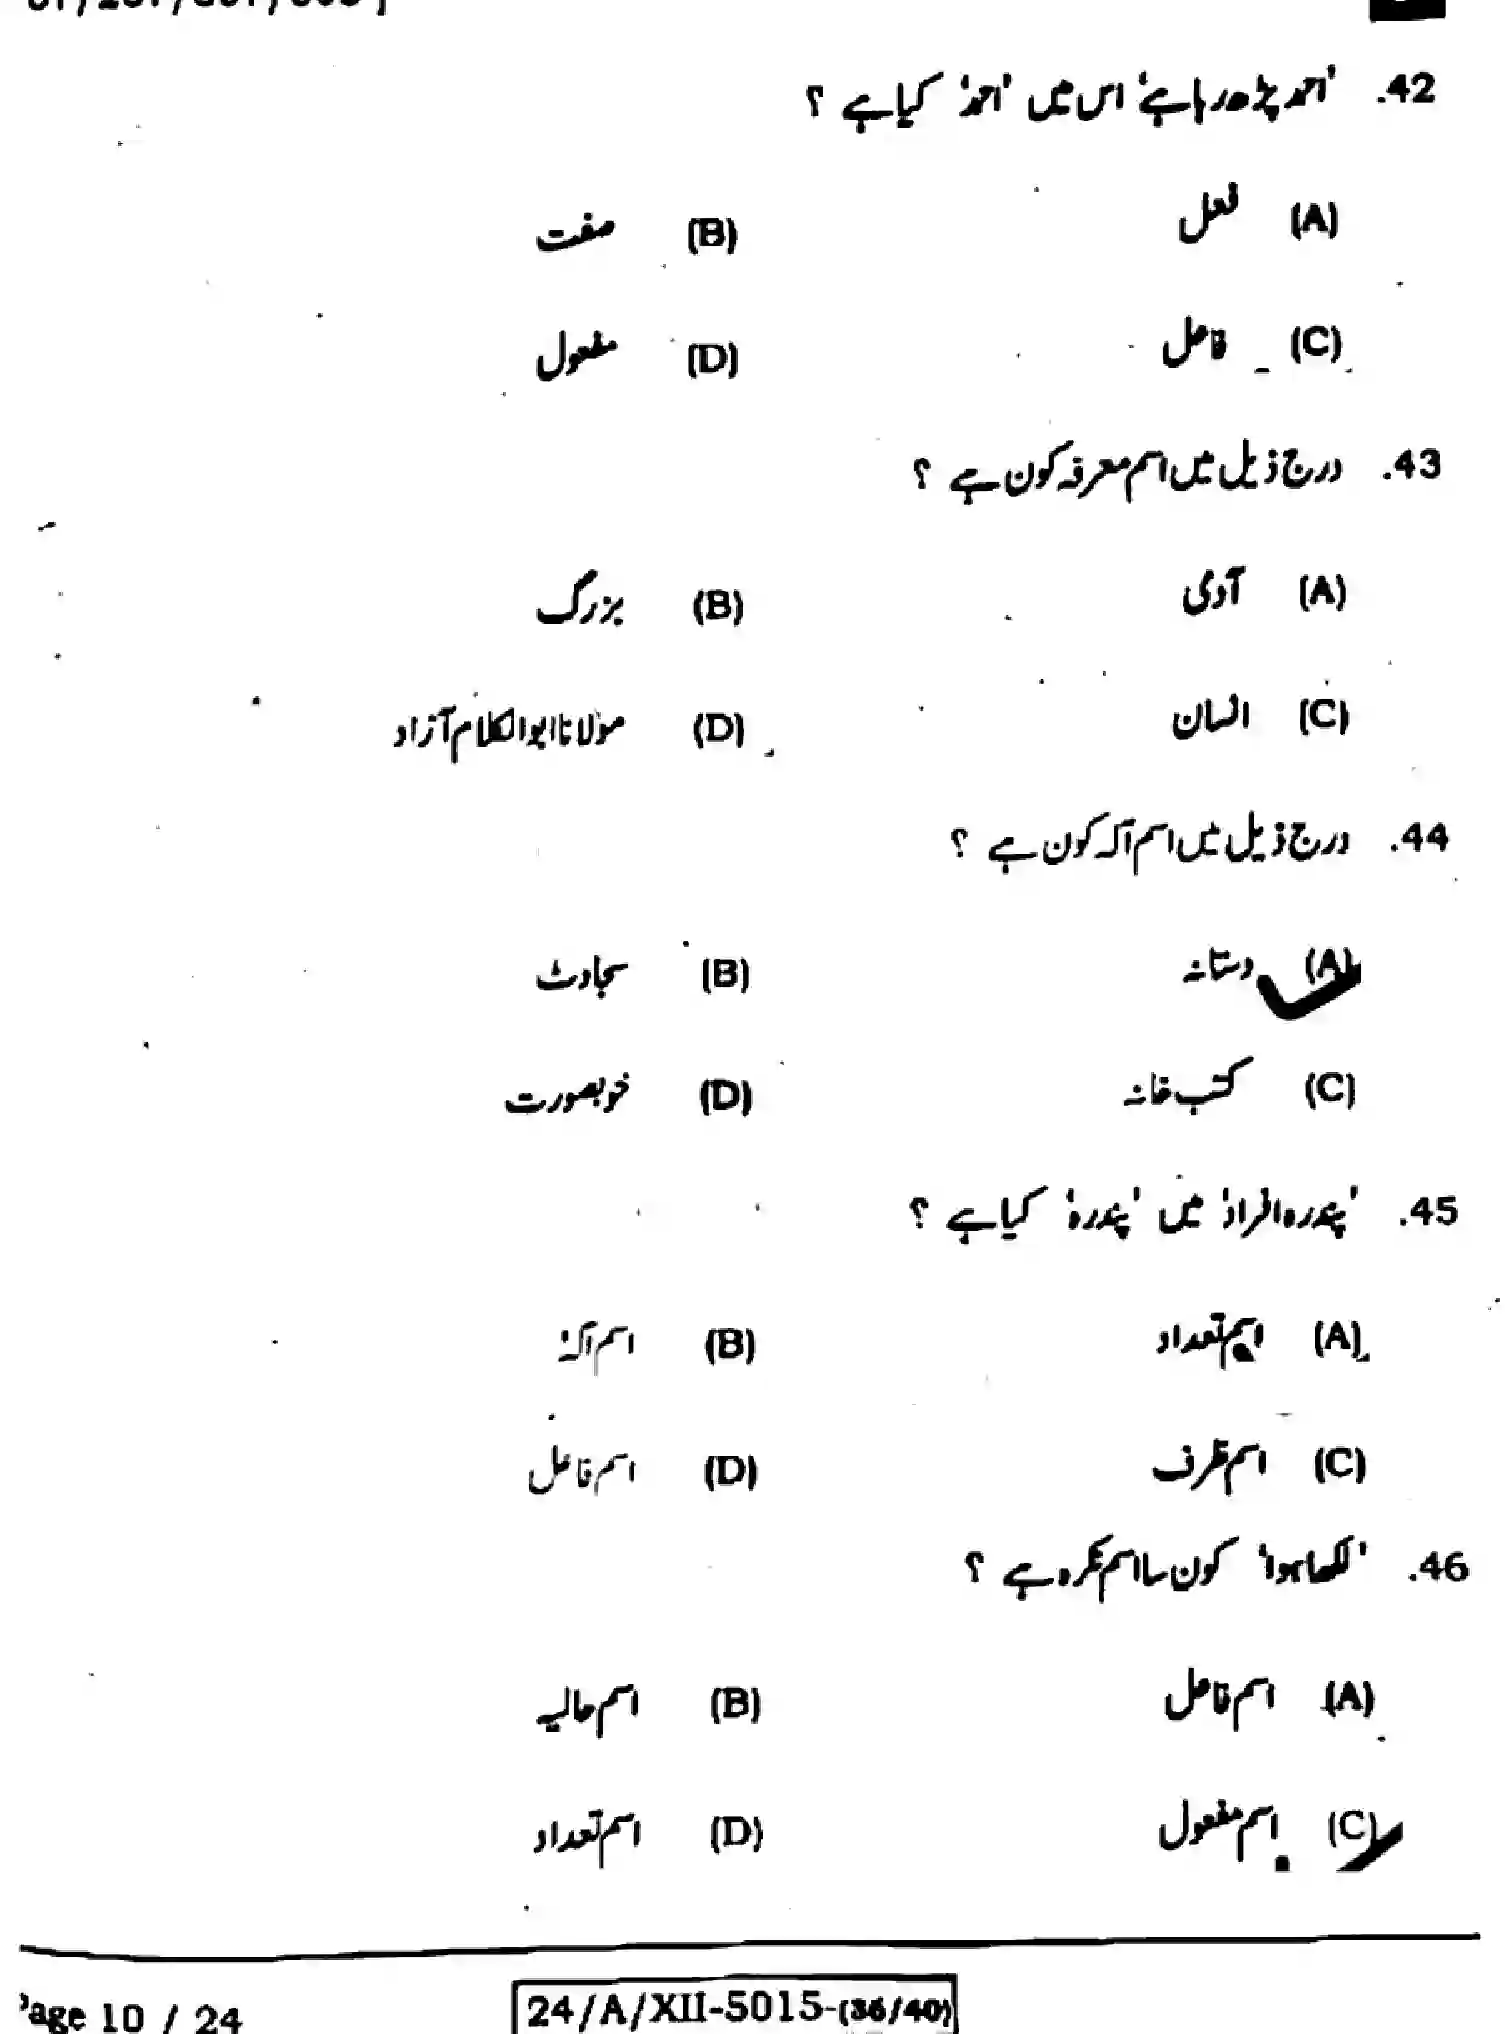 42. 'احمد پڑھ رہا ہے' اس میں 'احمد' کیا ہے ؟
(A) فعل (B) صفت
(C) فاعل (D) مفعول
43. درج ذیل میں اسم معرفہ کون ہے ؟
(A) آدمی (B) بزرگ
(C) انسان (D) مولانا ابوالکلام آزاد
44. درج ذیل میں اسم آلہ کون ہے ؟
(A) دستانہ (B) سجاوٹ
(C) کتب خانہ (D) خوبصورت
45. 'پندرہ افراد' میں 'پندرہ' کیا ہے ؟
(A) اسم تعداد (B) اسم آلہ
(C) اسم ظرف (D) اسم فاعل
46. 'لکھا ہوا' کون سا اسم نکرہ ہے ؟
(A) اسم فاعل (B) اسم حالیہ
(C) اسم مفعول (D) اسم تعداد
Page 10 / 24
24/A/XII-5015-(36/40)